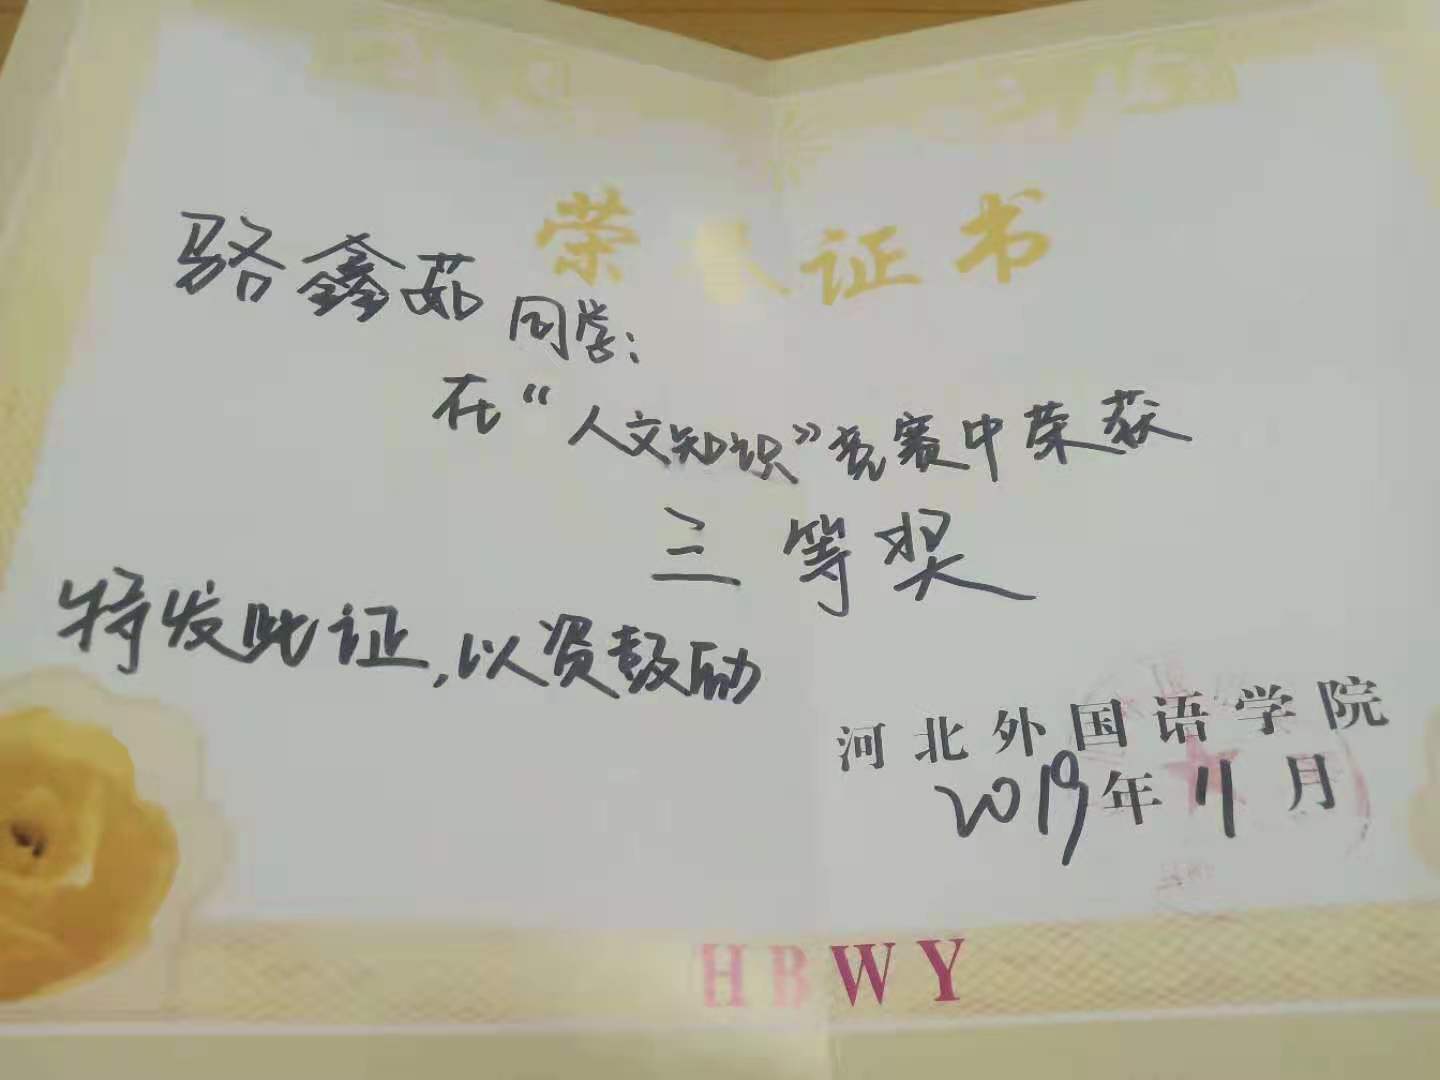 荣誉证书
骆鑫茹同学：
在“人文知识”竞赛中荣获
三等奖
特发此证，以资鼓励
河北外国语学院
2019年11月
HBWY